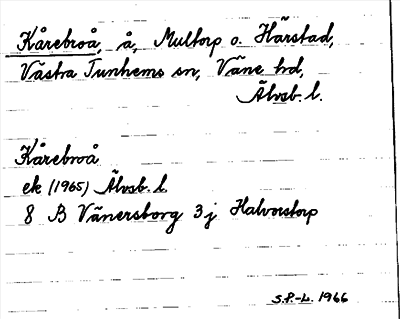 Kårebroå, å, Multorp o. Härstad,
Västra Tunhems sn, Väne hd,
Älvsb. l.
Kårebroå
ek (1965) Älvsb. l.
8 B Vänersborg 3j Halvorstorp
S.P.-L. 1966